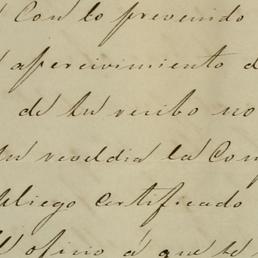 Con lo prevenido
apercivimiento d
de tu recibo no
su reveldia la Com
pliego certificado
oficio á que te